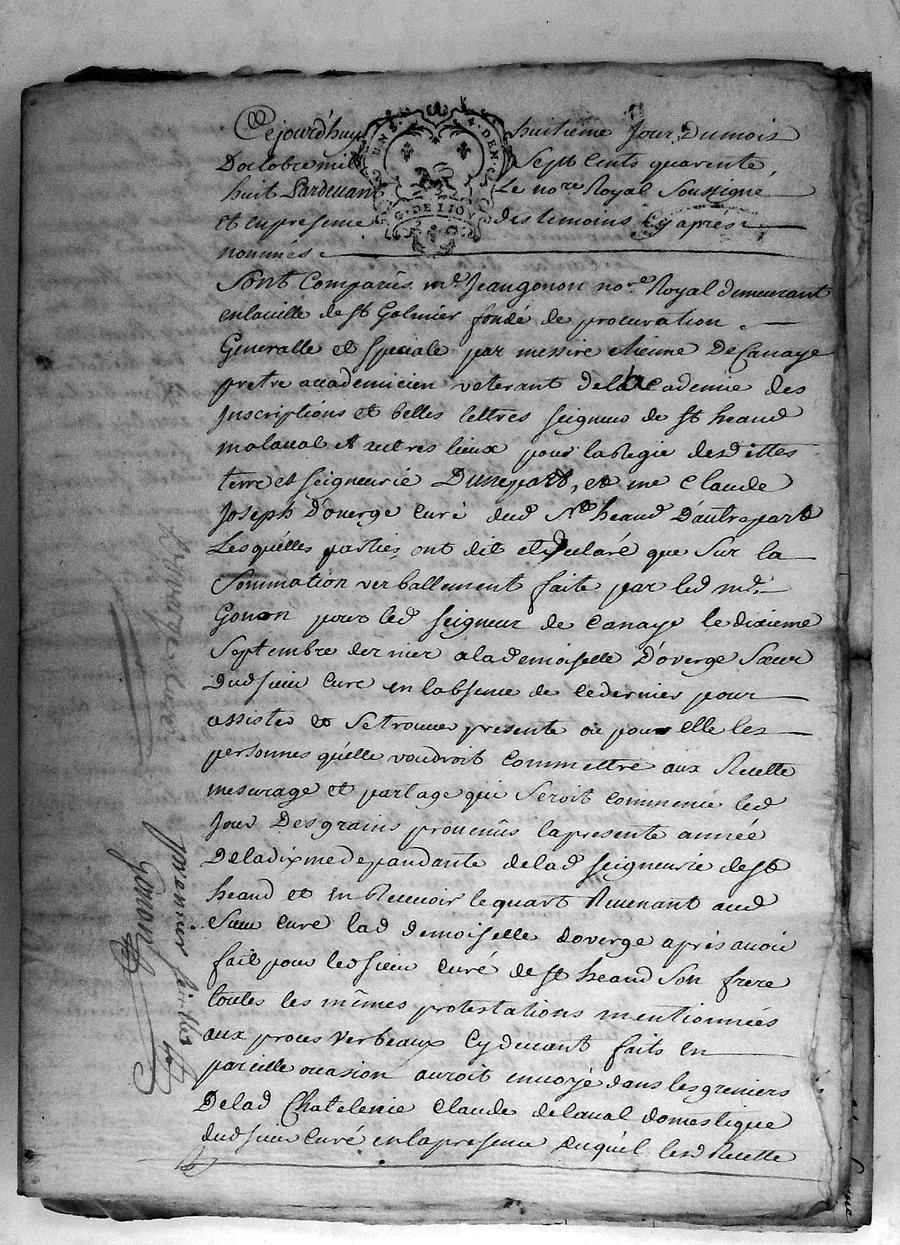 Cejourd'huy huitieme Jour Du mois
Doctobre mil Sept Cents quarente
huit Pardeuant Le nore Royal Soussigné
et en presence des temoins Cy après
nommés
UN S. 4. DEN.
G. DE LION
Sont Comparûs me. Jean gonon nore. Royal demeurant
en la ville de St Galmier fondé de procuration
Generalle et speciale par messire etienne De Canaye
pretre accademicien veterant de la accademie des
Inscriptions et belles lettres seigneur de St heand
malaval et autres lieux pour la Regie desdittes
terre et seigneurie D'unepart, et me Claude
Joseph D'overge Curé dud St heand D'autrepart
Lesquelles parties ont dit et declaré que Sur la
Sommation verballement faite par led me.
Gonon pour led seigneur de Canaye le dixieme
Septembre dernier a la demoiselle D'overge Sœur
dud sieur Curé en l'absence de ce dernier pour
assister et se trouver presente ou pour elle les
personnes qu'elle voudroit Commettre aux Recette
mesurage et partage qui Seroit commencé led
Jour Des grains provenûs la presente année
De la dixme depandante de lad seigneurie de St
heand et en Recevoir le quart Revenant aud
Sieur Curé lad demoiselle doverge après avoir
fait pour led sieur Curé de St heand Son frere
toutes les mêmes protestations mentionnées
aux procés verbeaux Cy devant faits en
pareille occasion auroit envoyé dans les greniers
De lad Chatelenie Claude delaval domestique
dud sieur Curé en la presence duquel lesd Recette
D'overge curé
Premier feuillet
Gonon